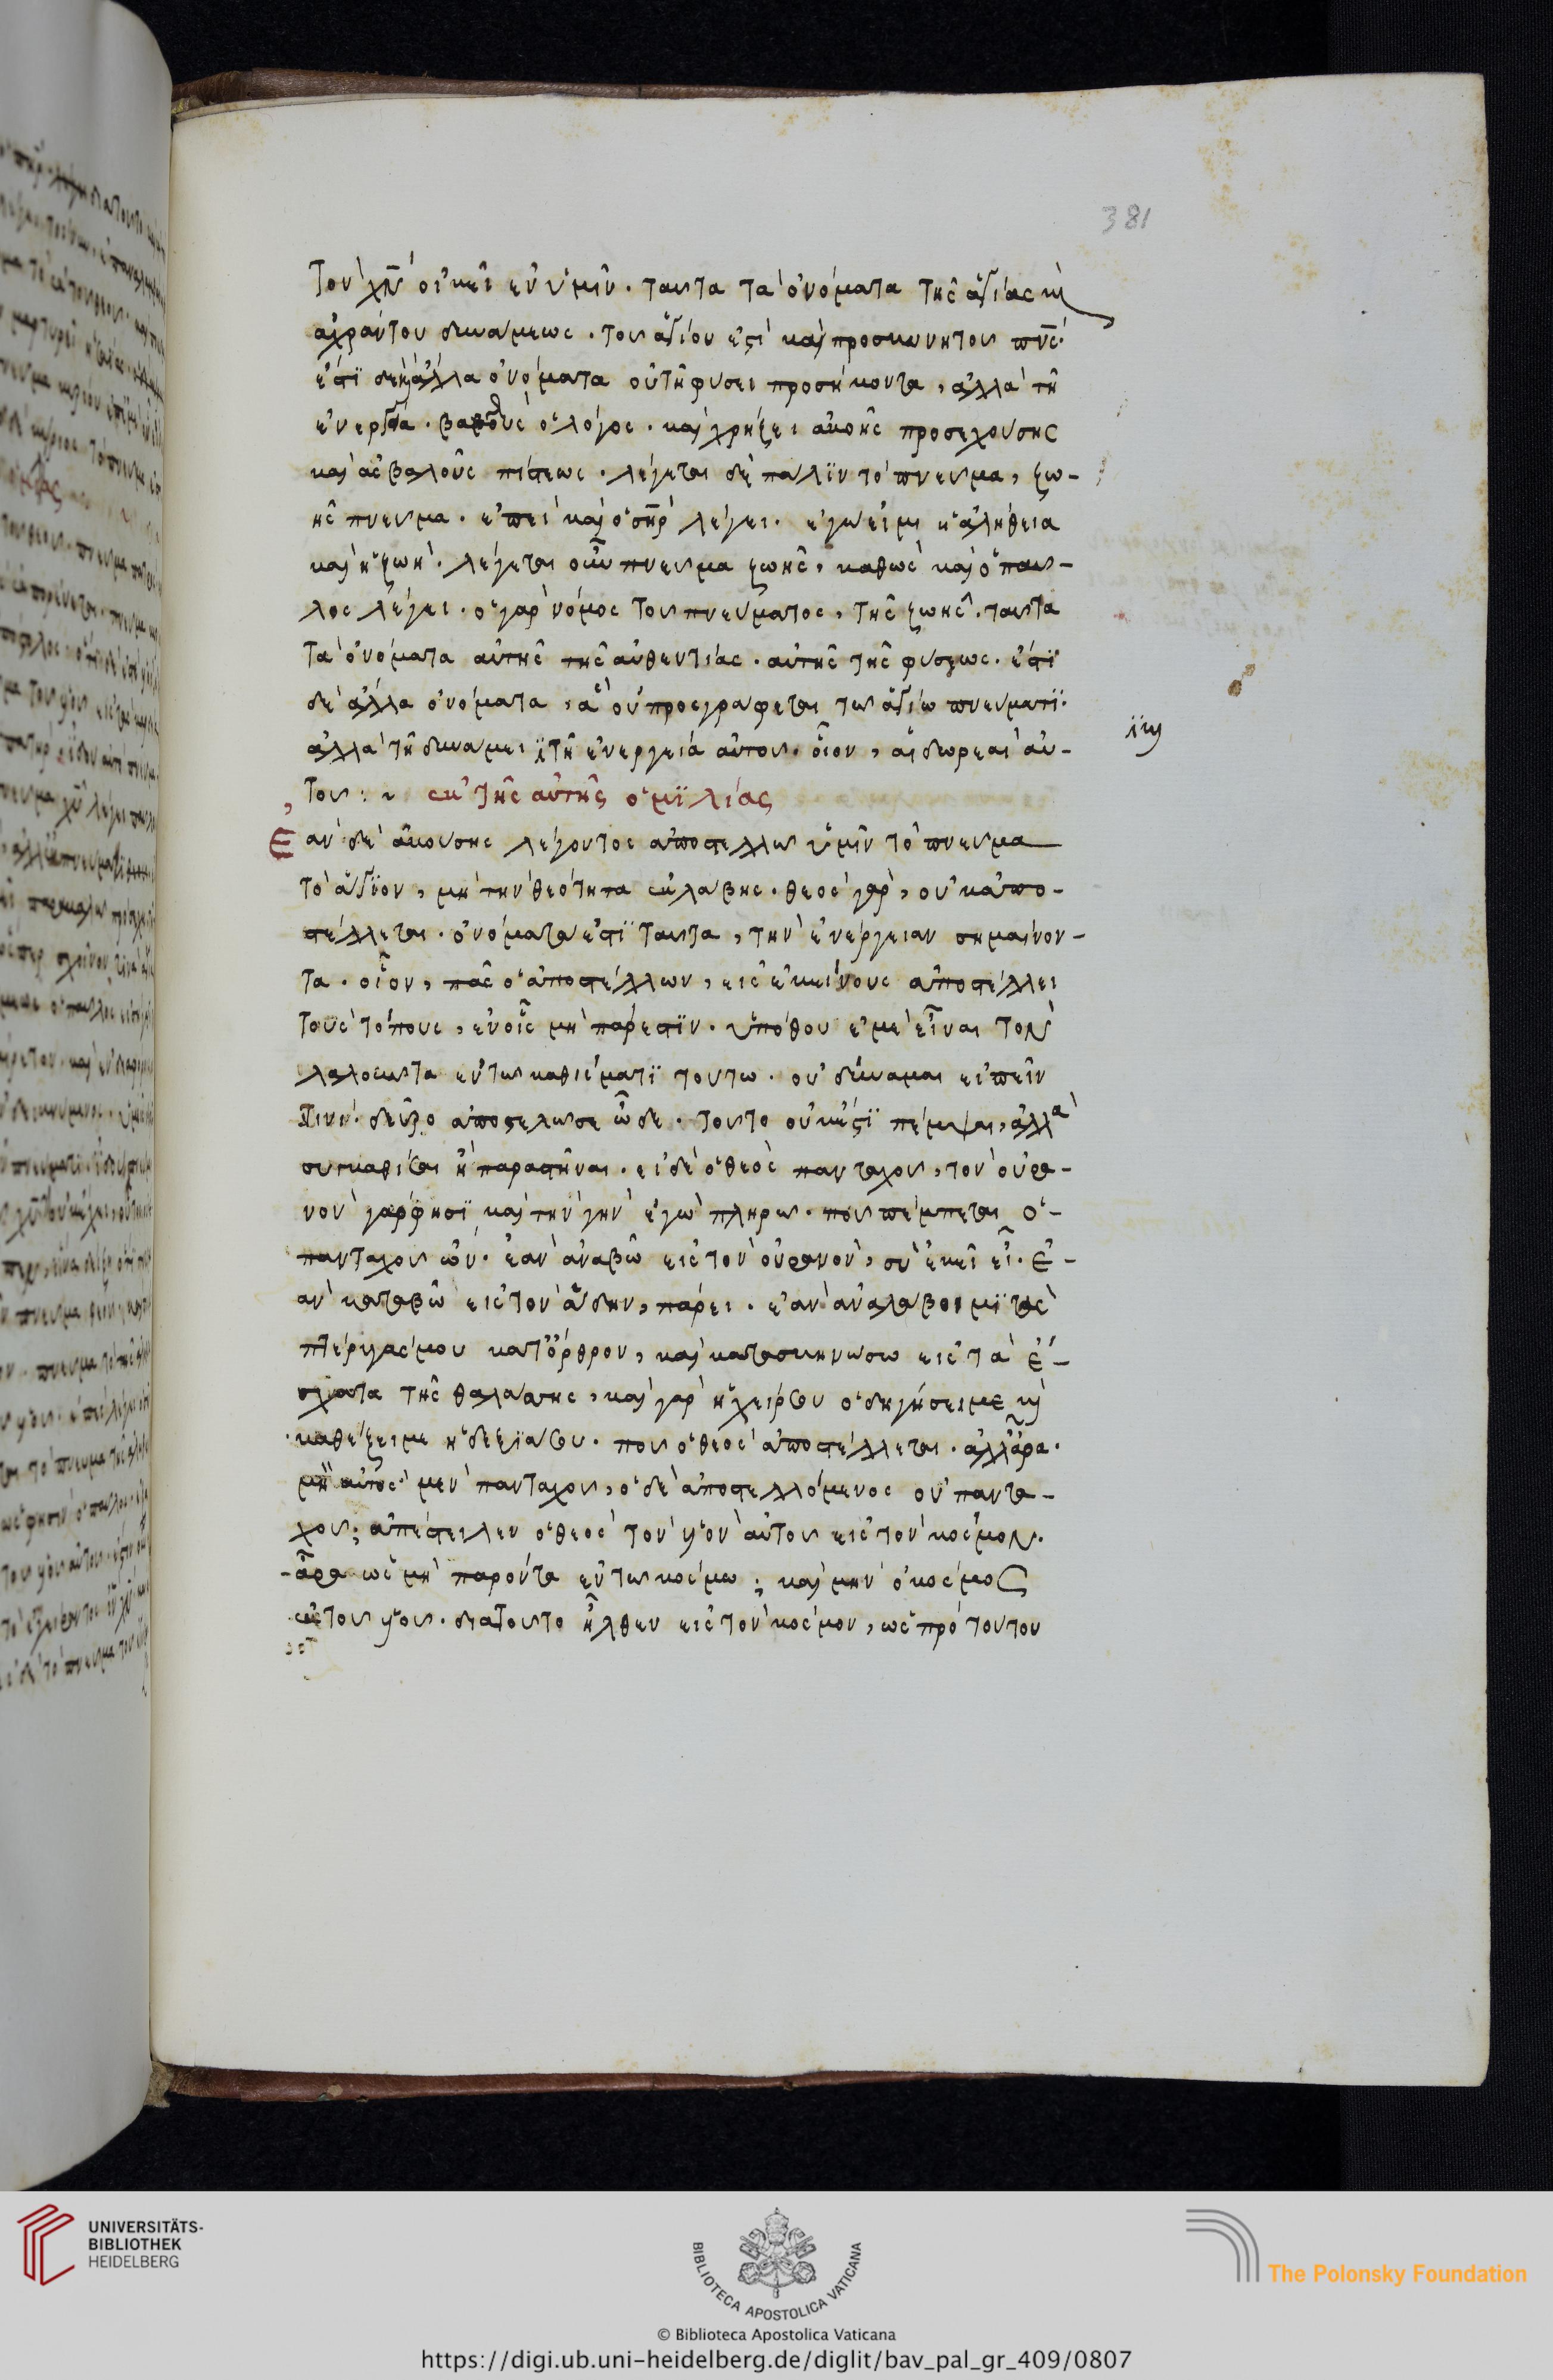 381
τὸν χν̅ οἰκεῖ ἐν ὑμῖν. ταυτα τὰ ὀνόματα τῆς ἁγίας κ(αὶ)
ἀχράντου δυνάμεως. του ἁγίου ἐστὶ καὶ προσκυνητου πν̅ς.
ἐστὶ δὲ κ(αὶ) ἄλλα ὀνόματα οὐ τῆ φυσει προσήκοντα, ἀλλὰ τῆ
ἐνεργεία. βαθὺς ὁ λόγος. καὶ χρήζει ἀκοῆς προσεχούσης
καὶ ἀσβαλοῦς πίστεως. λέγεται δὲ παλϊν τὸ πνευμα, ζω-
ῆς πνευμα. ἐπεὶ καὶ ὁ σηρ λέγει. ἐγω εἰμι ἡ ἀλήθεια
καὶ ἡ ζωὴ. λέγεται οὖν πνευμα ζωῆς, καθως καὶ ὁ παυ-
λος λέγει. ὁ γαρ νόμος του πνεύματος, τῆς ζωῆς. ταυτα
τὰ ὀνόματα αὐτῆς τῆς αὐθεντίας. αὐτῆς τῆς φυσεως. ἐστϊ
δὲ ἄλλα ὀνόματα, ἃ οὐ προσγραφεται τω ἁγίω πνευματϊ.
ἀλλὰ τῆ δυναμει κ(αὶ) τῆ ἐνεργεία αὐτου. οἷον, αἱ δωρεαὶ αὐ-
του: ~ ἐκ τῆς αὐτῆς ὁμϊλίας
Ἐὰν δὲ ἀκουσης λέγοντος ἀποστελλω ὑμῖν τὸ πνευμα
τὸ ἅγϊον, μὴ τὴν θεότητα ἐκλαβης. θεὸς γὰρ, οὐκ ἀπο-
στέλλεται. ὀνόματα ἐστϊ ταυτα, τὴν ἐνέργειαν σημαίνον-
τα. οἷον, πᾶς ὁ ἀποστέλλων, εἰς ἐκείνους ἀποστέλλει
τοὺς τόπους, ἐν οἷς μὴ πάρεστϊν. ὑπόθου ἐμὲ εἶναι τὸν
λαλουντα ἐν τω καθίσματϊ τουτω. οὐ δύναμαι εἰπεῖν
τινί. δεῦρο ἀποστελω σε ὧδε. τουτο οὐκ ἐστϊ πέμψαι, ἀλλὰ
συγκαθίσαι ἢ παραστῆναι. εἰ δὲ ὁ θεὸς πανταχου, τὸν οὐρα-
νὸν γάρ φησϊ καὶ τὴν γὴν ἐγὼ πληρω. που πέμπεται ὁ
πανταχου ὤν. ἐαν ἀναβῶ εἰς τὸν οὐρανὸν, σὺ ἐκεῖ εἶ. ἐ-
ὰν καταβῶ εἰς τὸν ἅδην, πάρει. ἐὰν ἀναλαβοιμϊ τὰς
πτέρυγας μου κατ ὄρθρον, καὶ κατασκηνωσω εἰς τὰ ἔ-
σχατα τῆς θαλάσσης, καὶ γὰρ ἡ χείρ σου ὁδηγήσει με κ(αὶ)
καθέξει με ἡ δεξϊα σου. που ὁ θεὸς ἀποστέλλεται. ἀλλ ἆρα.
μὴ αὐτὸς μὲν πανταχου, ὁ δὲ ἀποστελλόμενος οὐ παντα-
χου; ἀπέστειλεν ὁ θεὸς τὸν υἱὸν αὐτου εἰς τὸν κόσμον.
ἆρα ὡς μὴ παρόντα ἐν τω κόσμω; καὶ μὴν ὁ κοσμος
ἐκ του υἱου. δια τουτο ἦλθεν εἰς τὸν κόσμον, ὡς πρὸ τουτου
UNIVERSITÄTS-
BIBLIOTHEK
HEIDELBERG
BIBLIOTECA APOSTOLICA VATICANA
The Polonsky Foundation
© Biblioteca Apostolica Vaticana
https://digi.ub.uni-heidelberg.de/diglit/bav_pal_gr_409/0807